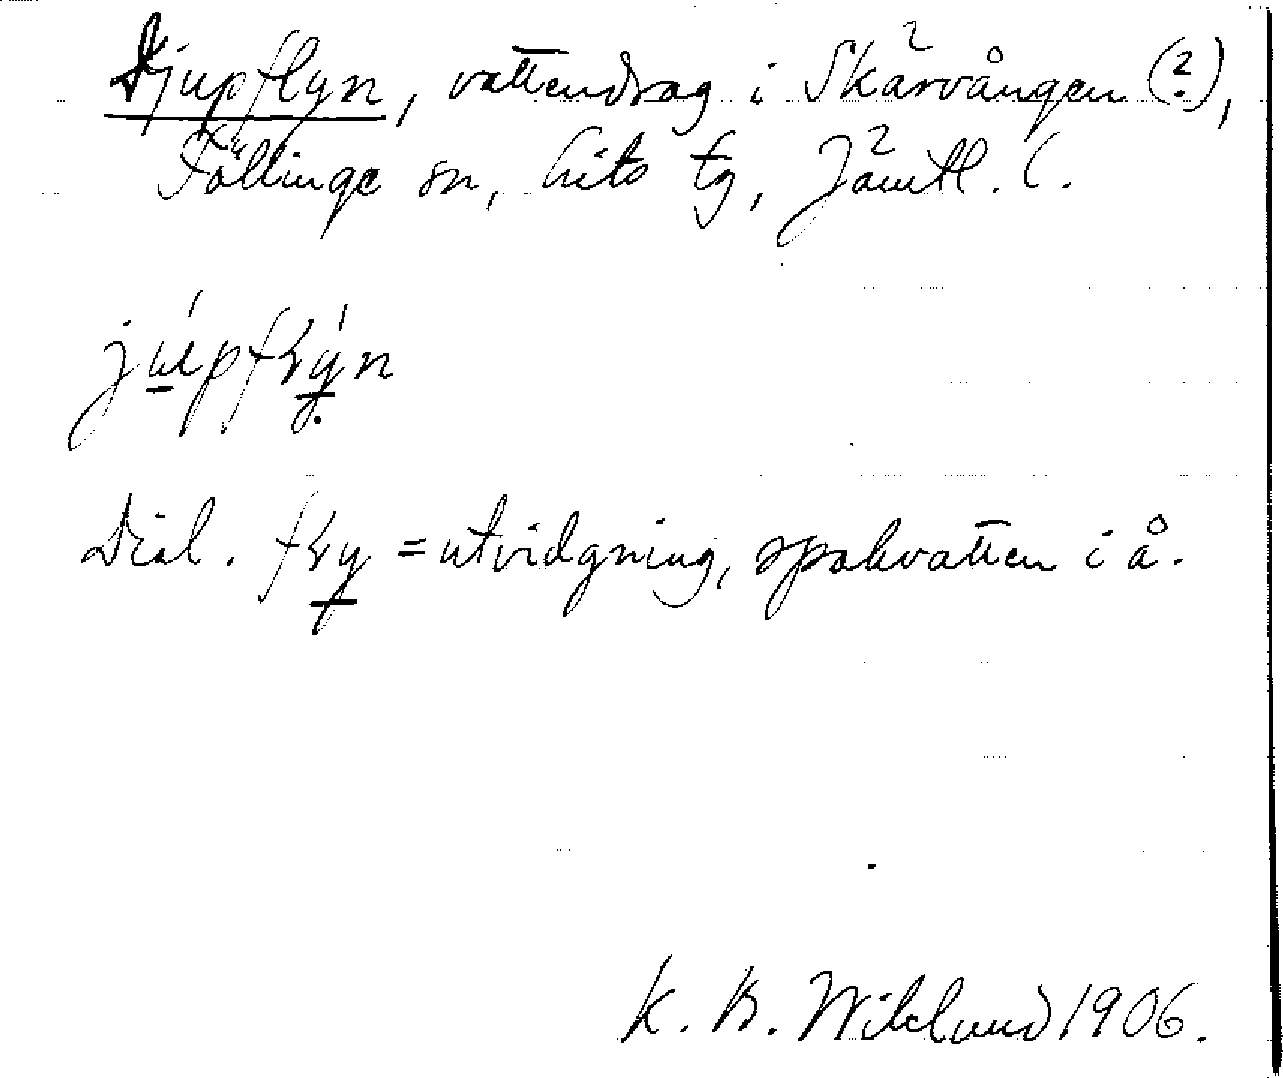 Djupflyn, vattendrag i Skärvången (?),
Föllinge sn, Lits tg, Jämtl. l.
júpfłýn
Dial. fły = utvidgning, spakvatten i å.
K. B. Wiklund 1906.